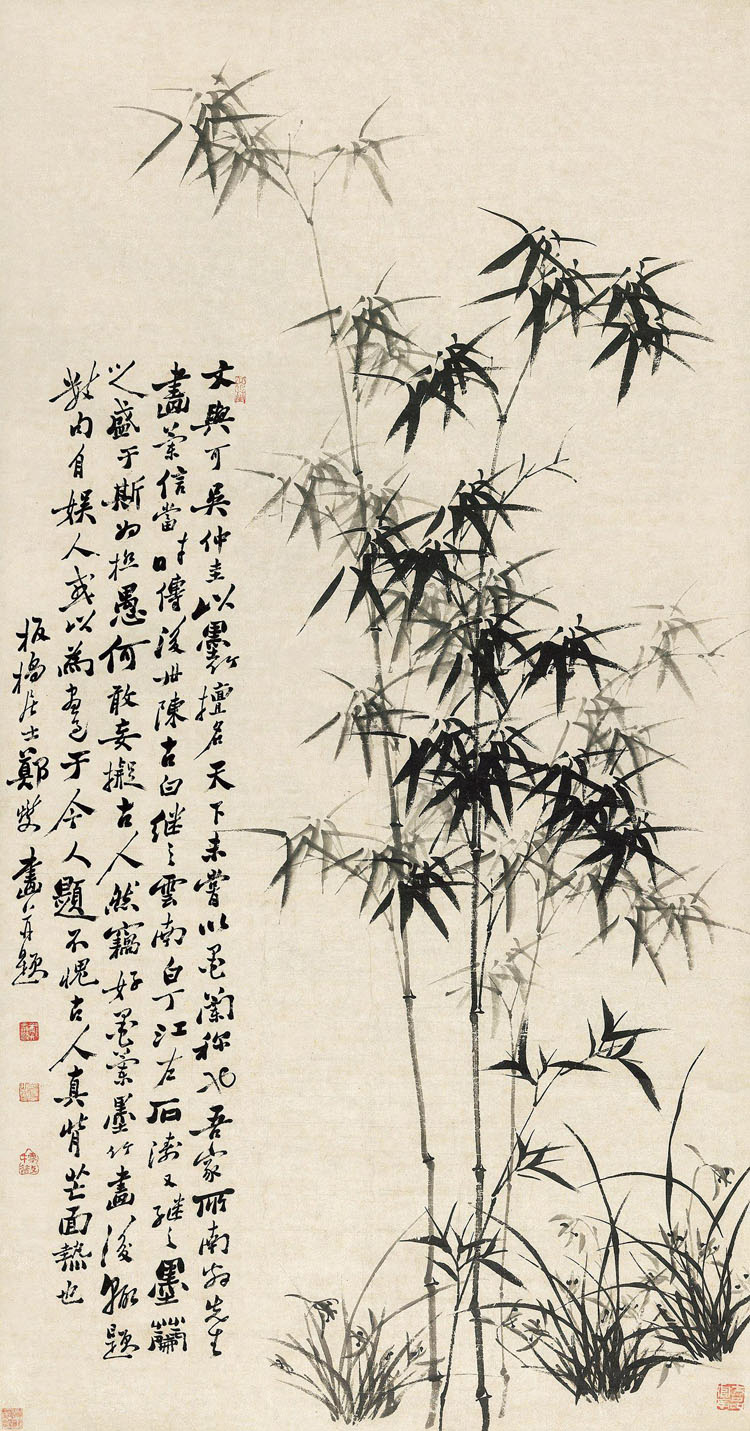 文與可吳仲圭以墨竹擅名天下未嘗以墨蘭称也吾家所南翁先生
畫蘭信當时傳後世陳古白继之雲南白丁江左石濤又继之墨蘭
之盛于斯为極愚何敢妄擬古人然竊好墨蘭墨竹畫後輒題
數句自娱人或以為畫過于今人題不愧古人真背芒面熱也
板橋居士鄭燮畫并題